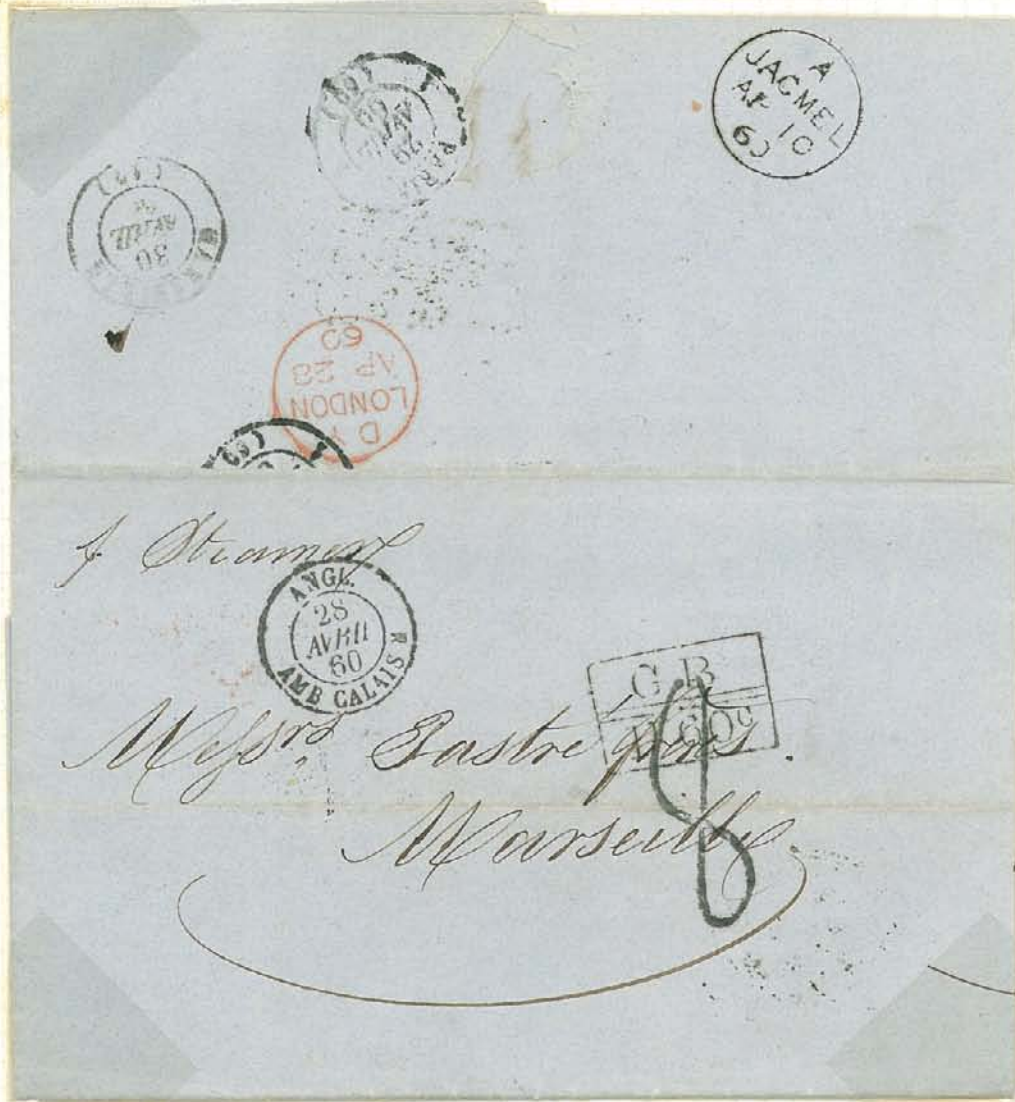 A
JACMEL
AP 10
60
(60)
PARIS
29
AVRIL
60
30
AVRIL
D Y
LONDON
AP 28
60
(60)
p Steamer
ANGL.
28
AVRIL
60
AMB CALAIS
G B
60c
8
Messrs. Pastré frères.
Marseille.